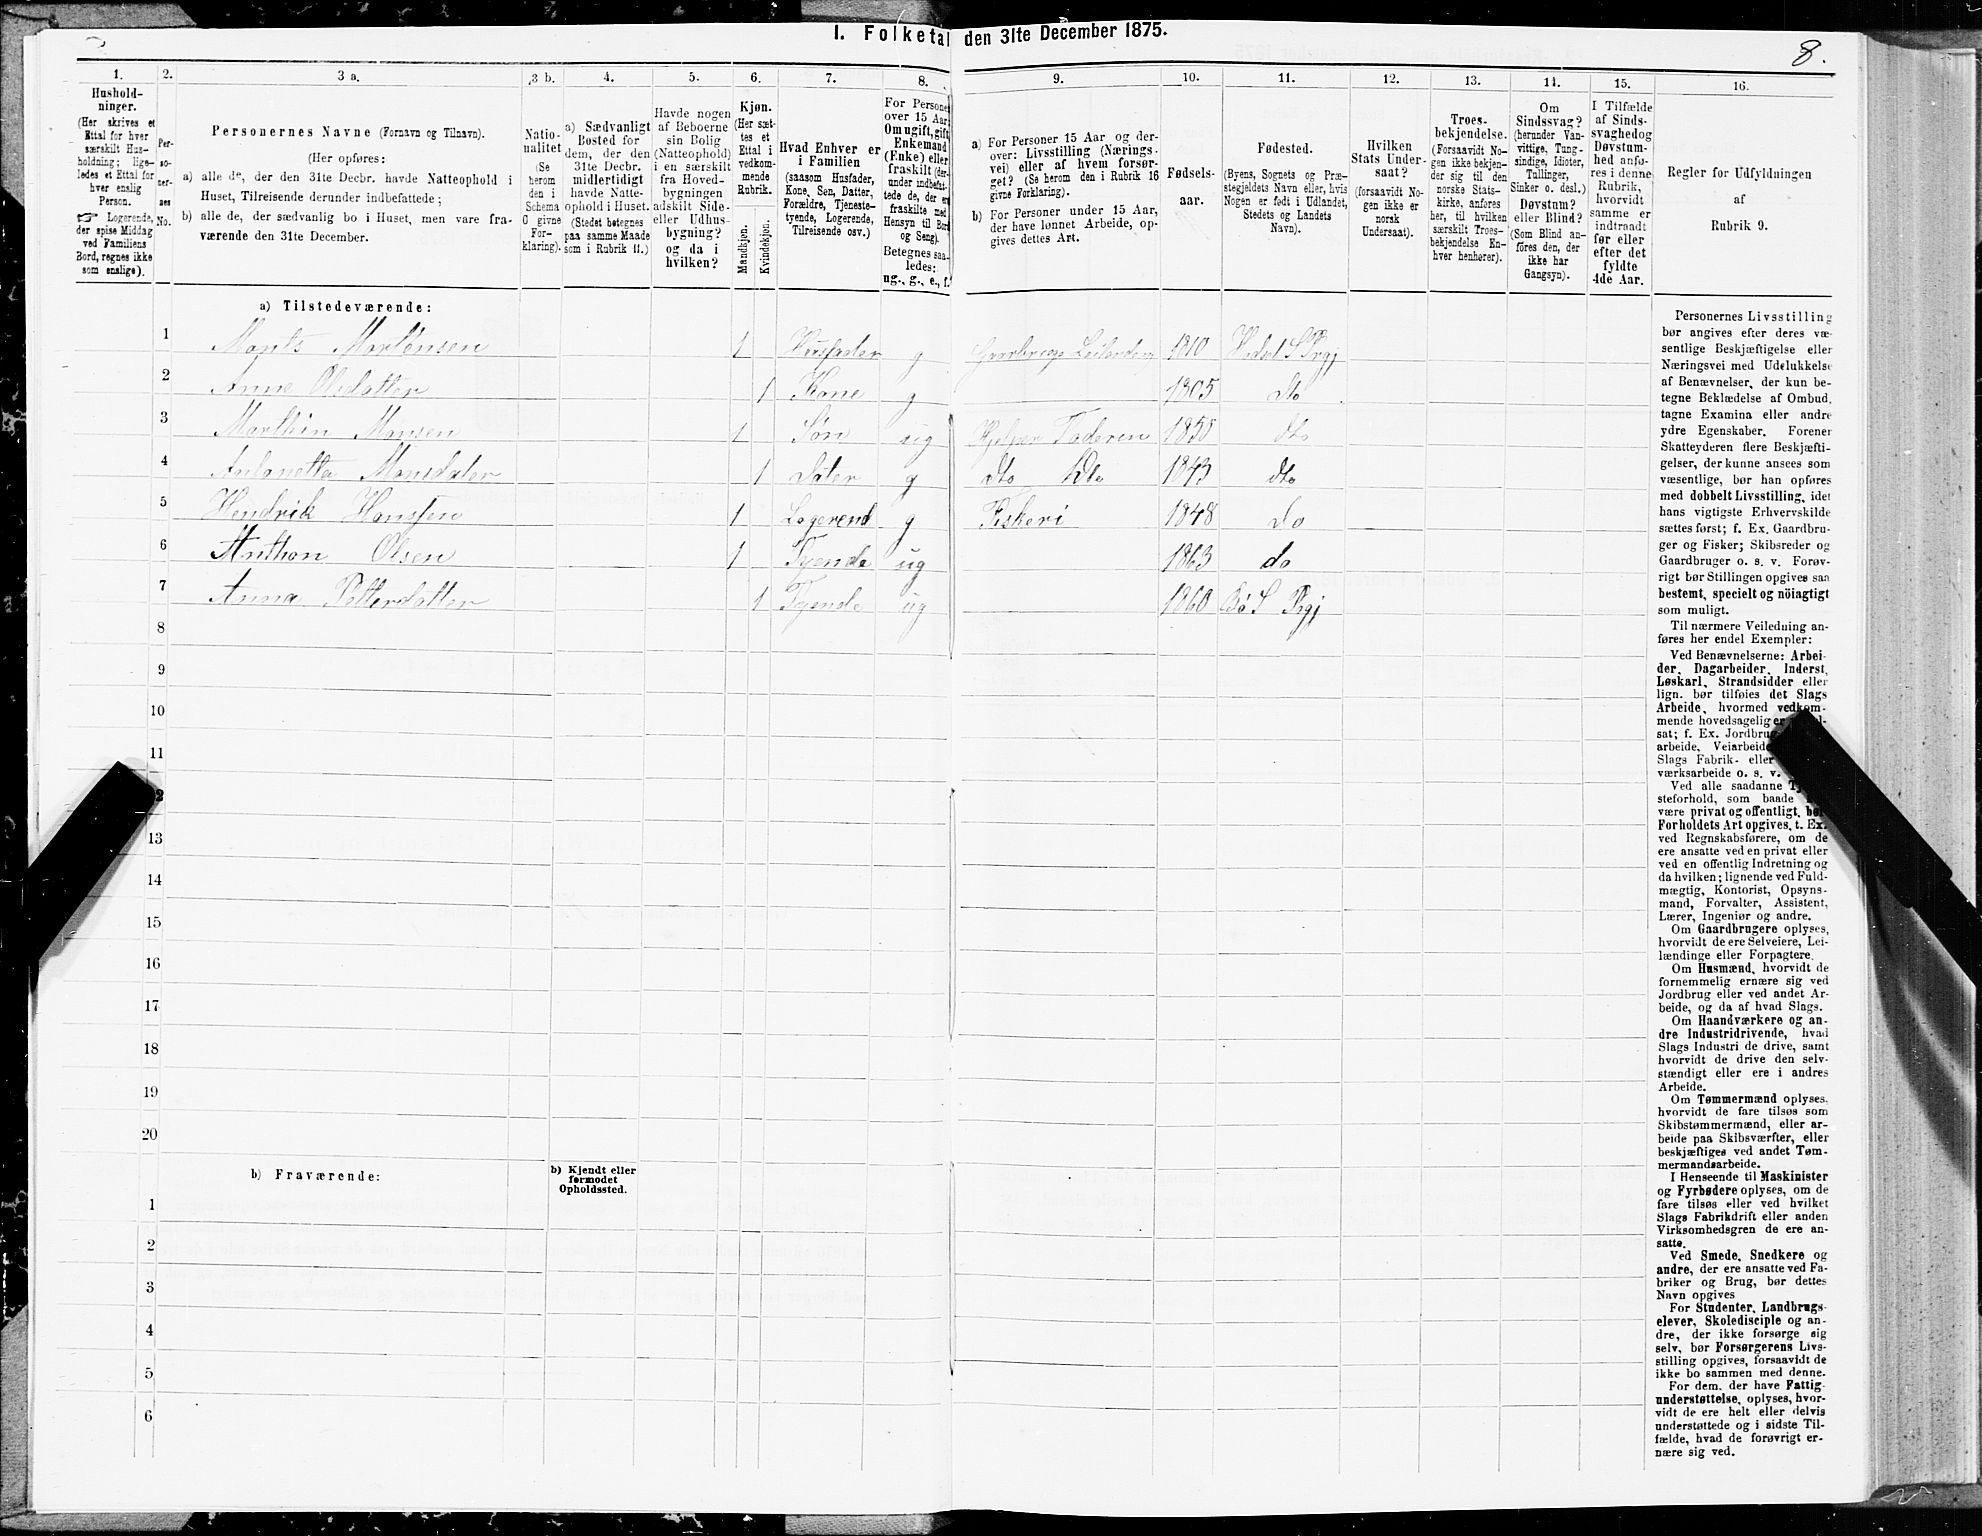 I. Folketal den 31te December 1875.
8.
1.
2.
3 a.
3 b.
4.
5.
6.
7.
8.
9.
10.
11.
12.
13.
14.
15.
16.
Hushold-
ninger.
(Her skrives et
Ettal for hver
særskilt Hus-
holdning; lige-
ledes et Ettal for
hver enslig
Person.
☞ Logerende,
der spise Middag
ved Familiens
Bord, regnes ikke
som enslige).
Per-
so-
ner-
nes
No.
Personernes Navne (Fornavn og Tilnavn).
(Her opføres:
a) alle de, der den 31te Decbr. havde Natteophold i
Huset, Tilreisende derunder indbefattede;
b) alle de, der sædvanlig bo i Huset, men vare fra-
værende den 31te December.
Natio-
nalitet
(Se
herom
den i
Schema
O givne
For-
klaring).
a) Sædvanligt
Bosted for
dem, der den
31te Decbr.
midlertidigt
havde Natte-
ophold i Huset.
(Stedet betegnes
paa samme Maade
som i Rubrik 11.)
Havde nogen
af Beboerne
sin Bolig
(Natteophold)
i en særskilt
fra Hoved-
bygningen
adskilt Side-
eller Udhus-
bygning?
og da i
hvilken?
Kjøn.
(Her sæt-
tes et
Ettal i
vedkom-
mende
Rubrik.
Mandkjøn.
Kvindekjøn.
Hvad Enhver er
i Familien
(saasom Husfader,
Kone, Søn, Datter,
Forældre, Tjeneste-
tyende, Logerende,
Tilreisende osv.)
For Personer
over 15 Aar:
Om ugift, gift,
Enkemand
(Enke) eller
fraskilt (der-
under indbefat-
tede de, der ere
fraskilte med
Hensyn til Bord
og Seng).
Betegnes saa-
ledes:
ug., g., e., f.
a) For Personer 15 Aar og der-
over: Livsstilling (Nærings-
vei) eller af hvem forsør-
get? (Se herom den i Rubrik 16
givne Forklaring).
b) For Personer under 15 Aar,
der have lønnet Arbeide, op-
gives dettes Art.
Fødsels-
aar.
Fødested.
(Byens, Sognets og Præ-
stegjeldets Navn eller, hvis
Nogen er født i Udlandet,
Stedets og Landets
Navn).
Hvilken
Stats Under-
saat?
(forsaavidt No-
gen ikke er
norsk
Undersaat).
Troes-
bekjendelse.
(Forsaavidt No-
gen ikke bekjen-
der sig til den
norske Stats-
kirke, anføres
her, til hvilken
særskilt Troes-
bekjendelse En-
hver henhører).
Om
Sindssvag?
(herunder Van-
vittige, Tung-
sindige, Idioter,
Tullinger,
Sinker o. desl.)
Døvstum?
eller Blind?
(Som Blind an-
føres den, der
ikke har
Gangsyn).
I Tilfælde
af Sinds-
svaghed og
Døvstum-
hed anfø-
res i denne
Rubrik,
hvorvidt
samme er
indtraadt
før eller
efter det
fyldte
4de Aar.
Regler for Udfyldningen
af
Rubrik 9.
a) Tilstedeværende:
1 Monts Mortensen 1 Husfader g Gaardbruger Leilending 1810 Hadsel S Prgj
2 Anne Olsdatter 1 Kone g 1805 do
3 Marthin Monsen 1 Søn ug Hjelper Faderen 1850 do
4 Antonetta Monsdater 1 Dater g do do 1843 do
5 Hendrik Hanssen 1 Logerend g Fiskeri 1848 do
6 Anthon Olsen 1 Tyende ug 1863 do
7 Anna Petterdatter 1 Tyende ug 1860 Bø S Prgj
8
9
10
11
2
13
14
15
16
17
18
19
20
b) Fraværende:
b) Kjendt eller
formodet
Opholdssted.
1
2
3
4
5
6
Personernes Livsstilling
bør angives efter deres væ-
sentlige Beskjæftigelse eller
Næringsvei med Udelukkelse
af Benævnelser, der kun be-
tegne Beklædelse af Ombud,
tagne Examina eller andre
ydre Egenskaber. Forener
Skatteyderen flere Beskjæfti-
gelser, der kunne ansees som
væsentlige, bør han opføres
med dobbelt Livsstilling, idet
hans vigtigste Erhvervskilde
sættes først; f. Ex. Gaardbru-
ger og Fisker; Skibsreder og
Gaardbruger o. s. v. Forøv-
rigt bør Stillingen opgives saa
bestemt, specielt og nöiagtigt
som muligt.
Til nærmere Veiledning an-
føres her endel Exempler:
Ved Benævnelserne: Arbei-
der, Dagarbeider, Inderst,
Løskarl, Strandsidder eller
lign. bør tilføies det Slags
Arbeide, hvormed vedkom-
mende hovedsagelig er
sat; f. Ex. Jordbrug
arbeide, Veiarbeide
Slags Fabrik- eller
værksarbeide o. s. v.
Ved alle saadanne
steforhold, som baade
være privat og offentligt, bør
Forholdets Art opgives, t. Ex.
ved Regnskabsførere, om de
ere ansatte ved en privat eller
ved en offentlig Indretning og
da hvilken; lignende ved Fuld-
mægtig, Kontorist, Opsyns-
mand, Forvalter, Assistent,
Lærer, Ingeniør og andre.
Om Gaardbrugere oplyses,
hvorvidt de ere Selveiere, Lei-
lændinge eller Forpagtere.
Om Husmænd, hvorvidt de
fornemmelig ernære sig ved
Jordbrug eller ved andet Ar-
beide, og da af hvad Slags.
Om Haandværkere og an-
dre Industridrivende, hvad
Slags Industri de drive, samt
hvorvidt de drive den selv-
stændigt eller ere i andres
Arbeide.
Om Tømmermænd oplyses,
hvorvidt de fare tilsøs som
Skibstømmermænd, eller ar-
beide paa Skibsværfter, eller
beskjæftiges ved andet Tøm-
mermandsarbeide.
I Henseende til Maskinister
og Fyrbødere oplyses, om de
fare tilsøs eller ved hvilket
Slags Fabrikdrift eller anden
Virksomhedsgren de ere an-
satte.
Ved Smede, Snedkere og
andre, der ere ansatte ved Fa-
briker og Brug, bør dettes
Navn opgives
For Studenter, Landbrugs-
elever, Skoledisciple og an-
dre, der ikke forsørge sig
selv, bør Forsørgerens Livs-
stilling opgives, forsaavidt de
ikke bo sammen med denne.
For dem, der have Fattig-
understøttelse, oplyses, hvor-
vidt de ere helt eller delvis
understøttede og i sidste Til-
fælde, hvad de forøvrigt er-
nære sig ved.